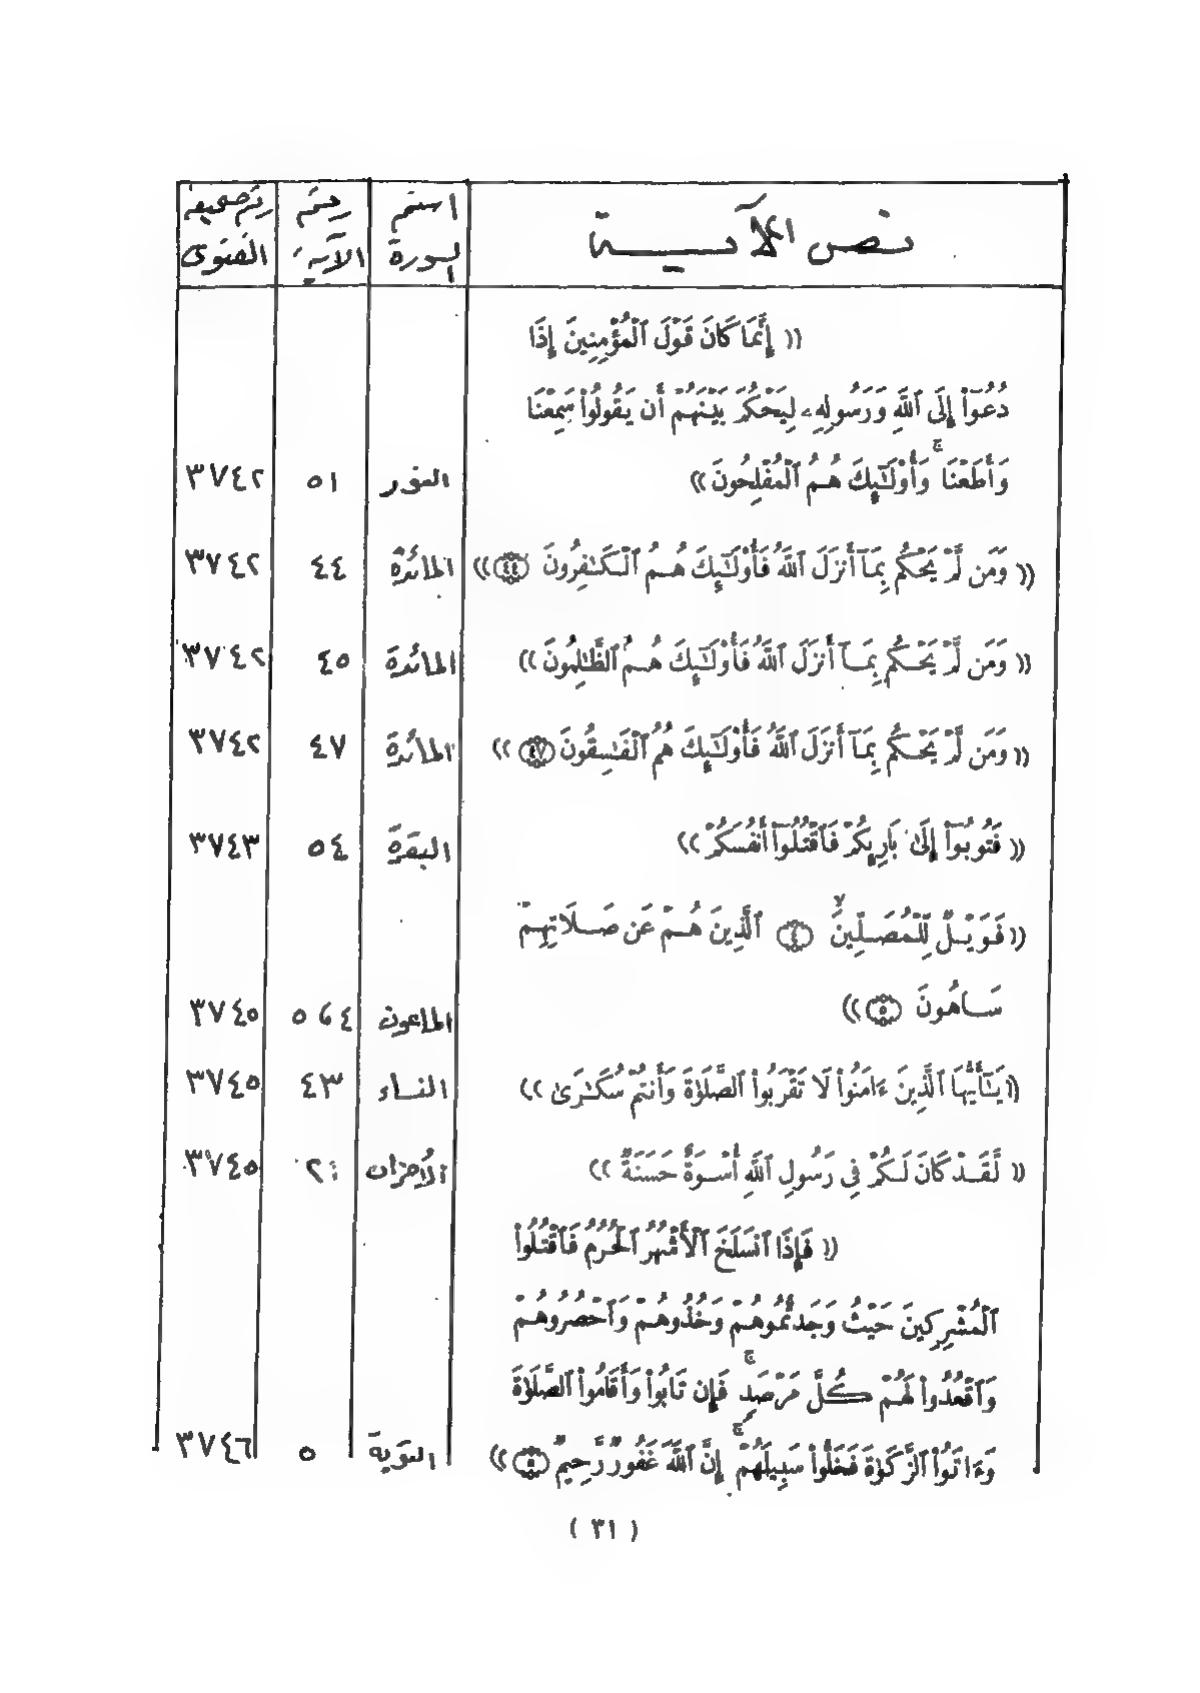 نص الآية | اسم | رقم | رقم صحيفة
السورة | الآية | الفتوى
(( إِنَّمَا كَانَ قَوْلَ ٱلْمُؤْمِنِينَ إِذَا
دُعُوٓا۟ إِلَى ٱللَّهِ وَرَسُولِهِۦ لِيَحْكُمَ بَيْنَهُمْ أَن يَقُولُوا۟ سَمِعْنَا
وَأَطَعْنَا ۚ وَأُو۟لَـٰٓئِكَ هُمُ ٱلْمُفْلِحُونَ )) | النور | ٥١ | ٣٧٤٢
(( وَمَن لَّمْ يَحْكُم بِمَآ أَنزَلَ ٱللَّهُ فَأُو۟لَـٰٓئِكَ هُمُ ٱلْكَـٰفِرُونَ ۝٤٤ )) | المائدة | ٤٤ | ٣٧٤٢
(( وَمَن لَّمْ يَحْكُم بِمَآ أَنزَلَ ٱللَّهُ فَأُو۟لَـٰٓئِكَ هُمُ ٱلظَّـٰلِمُونَ )) | المائدة | ٤٥ | ٣٧٤٢
(( وَمَن لَّمْ يَحْكُم بِمَآ أَنزَلَ ٱللَّهُ فَأُو۟لَـٰٓئِكَ هُمُ ٱلْفَـٰسِقُونَ ۝٤٧ )) | المائدة | ٤٧ | ٣٧٤٢
(( فَتُوبُوٓا۟ إِلَىٰ بَارِئِكُمْ فَٱقْتُلُوٓا۟ أَنفُسَكُمْ )) | البقرة | ٥٤ | ٣٧٤٣
(( فَوَيْلٌ لِّلْمُصَلِّينَ ۙ ۝٤ ٱلَّذِينَ هُمْ عَن صَلَاتِهِمْ
سَاهُونَ ۝٥ )) | الماعون | ٤ ، ٥ | ٣٧٤٥
(( يَـٰٓأَيُّهَا ٱلَّذِينَ ءَامَنُوا۟ لَا تَقْرَبُوا۟ ٱلصَّلَوٰةَ وَأَنتُمْ سُكَـٰرَىٰ )) | النساء | ٤٣ | ٣٧٤٥
(( لَّقَدْ كَانَ لَكُمْ فِى رَسُولِ ٱللَّهِ أُسْوَةٌ حَسَنَةٌ )) | الأحزاب | ٢١ | ٣٧٤٥
(( فَإِذَا ٱنسَلَخَ ٱلْأَشْهُرُ ٱلْحُرُمُ فَٱقْتُلُوا۟
ٱلْمُشْرِكِينَ حَيْثُ وَجَدتُّمُوهُمْ وَخُذُوهُمْ وَٱحْصُرُوهُمْ
وَٱقْعُدُوا۟ لَهُمْ كُلَّ مَرْصَدٍ ۚ فَإِن تَابُوا۟ وَأَقَامُوا۟ ٱلصَّلَوٰةَ
وَءَاتَوُا۟ ٱلزَّكَوٰةَ فَخَلُّوا۟ سَبِيلَهُمْ ۚ إِنَّ ٱللَّهَ غَفُورٌ رَّحِيمٌ ۝٥ )) | التوبة | ٥ | ٣٧٤٦
( ٣١ )